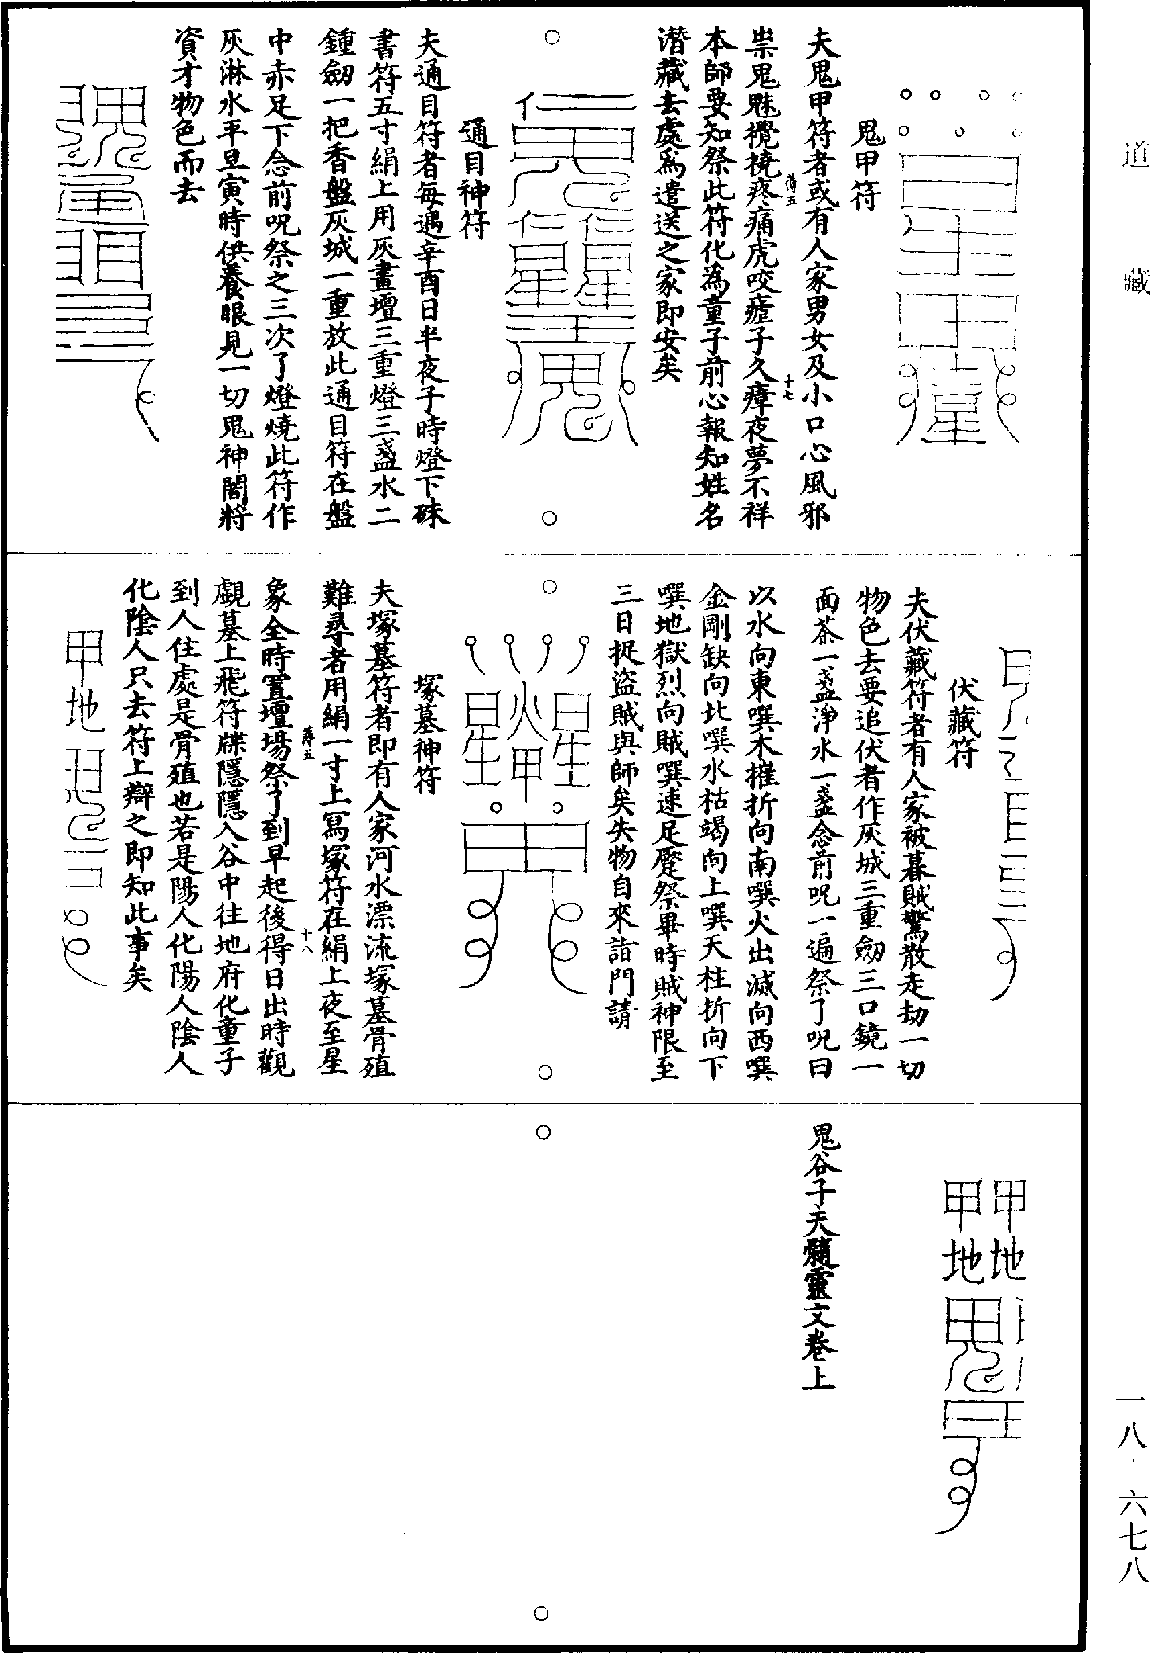 道藏
鬼甲符
夫鬼甲符者或有人家男女及小口心風邪
祟鬼魅攪擾疼痛虎咬瘧子久瘴夜夢不祥
本師要知祭此符化為童子前心報知姓名
潛藏去處為遣送之家即安矣
通目神符
夫通目符者每遇辛酉日半夜子時燈下硃
書符五寸絹上用灰畫壇三重燈三盞水二
鍾劒一把香盤灰城一重放此通目符在盤
中赤足下念前呪祭之三次了燈燒此符作
灰淋水平旦寅時供養眼見一切鬼神闇將
資才物色而去
伏藏符
夫伏藏符者有人家被暮賊驚散走劫一切
物色去要追伏者作灰城三重劒三口鏡一
面茶一盞淨水一盞念前呪一遍祭了呪曰
以水向東噀木摧折向南噀火出滅向西噀
金剛缺向北噀水枯竭向上噀天柱折向下
噀地獄烈向賊噀速足蹙祭畢時賊神限至
三日捉盜賊與師矣失物自來詣門請
塚墓神符
夫塚墓符者即有人家河水漂流塚墓骨殖
難尋者用絹一寸上寫塚符在絹上夜至星
象全時置壇場祭了到早起後得日出時觀
覷墓上飛符牒隱隱入谷中往地府化童子
到人住處是骨殖也若是陽人化陽人陰人
化陰人只去符上辯之即知此事矣
甲地
甲地
甲地
鬼谷子天髓靈文卷上
一八·六七八